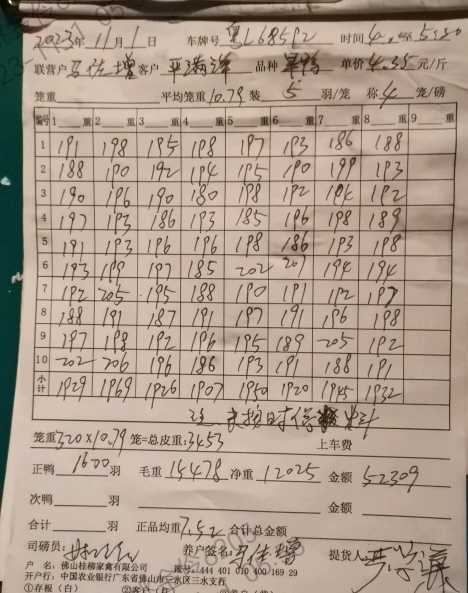 2023年11月1日 车牌号 粤L68512 时间4. 至5:20
联营户 马佐增 客户 平满洋 品种 单价4.35元/斤
笼重 平均笼重10.79 装 5 羽/笼 称 4 笼/磅
编号 1 重 2 重 3 重 4 重 5 重 6 重 7 重 8 重 9 重
1 191 198 195 198 197 193 186 188
2 188 190 192 194 195 190 199 193
3 190 196 190 180 198 192 194 192
4 197 193 186 193 185 196 198 189
5 191 193 196 196 198 186 193 198
6 193 199 197 185 202 201 194 194
7 192 205 195 188 190 191 192 197
8 188 191 187 191 197 191 196 198
9 197 198 192 196 195 189 205 192
10 202 206 196 186 193 191 188 191
小计 1929 1969 1926 1907 1950 1920 1945 1932
笼重320×10.79 笼=总皮重:3453 上车费
正鸭 1600 羽 毛重 15478 净重 12025 金额 52309
次鸭 羽 金额
合计 羽 正品均重 7.52 合计总金额
司磅员: 养户签名: 马佐增 提货人:
户 名:佛山桂柳家禽有限公司 账号:444 401 010 400 169 29
开户行:中国农业银行广东省佛山市三水区三水支行
①存根(白) ②客户(